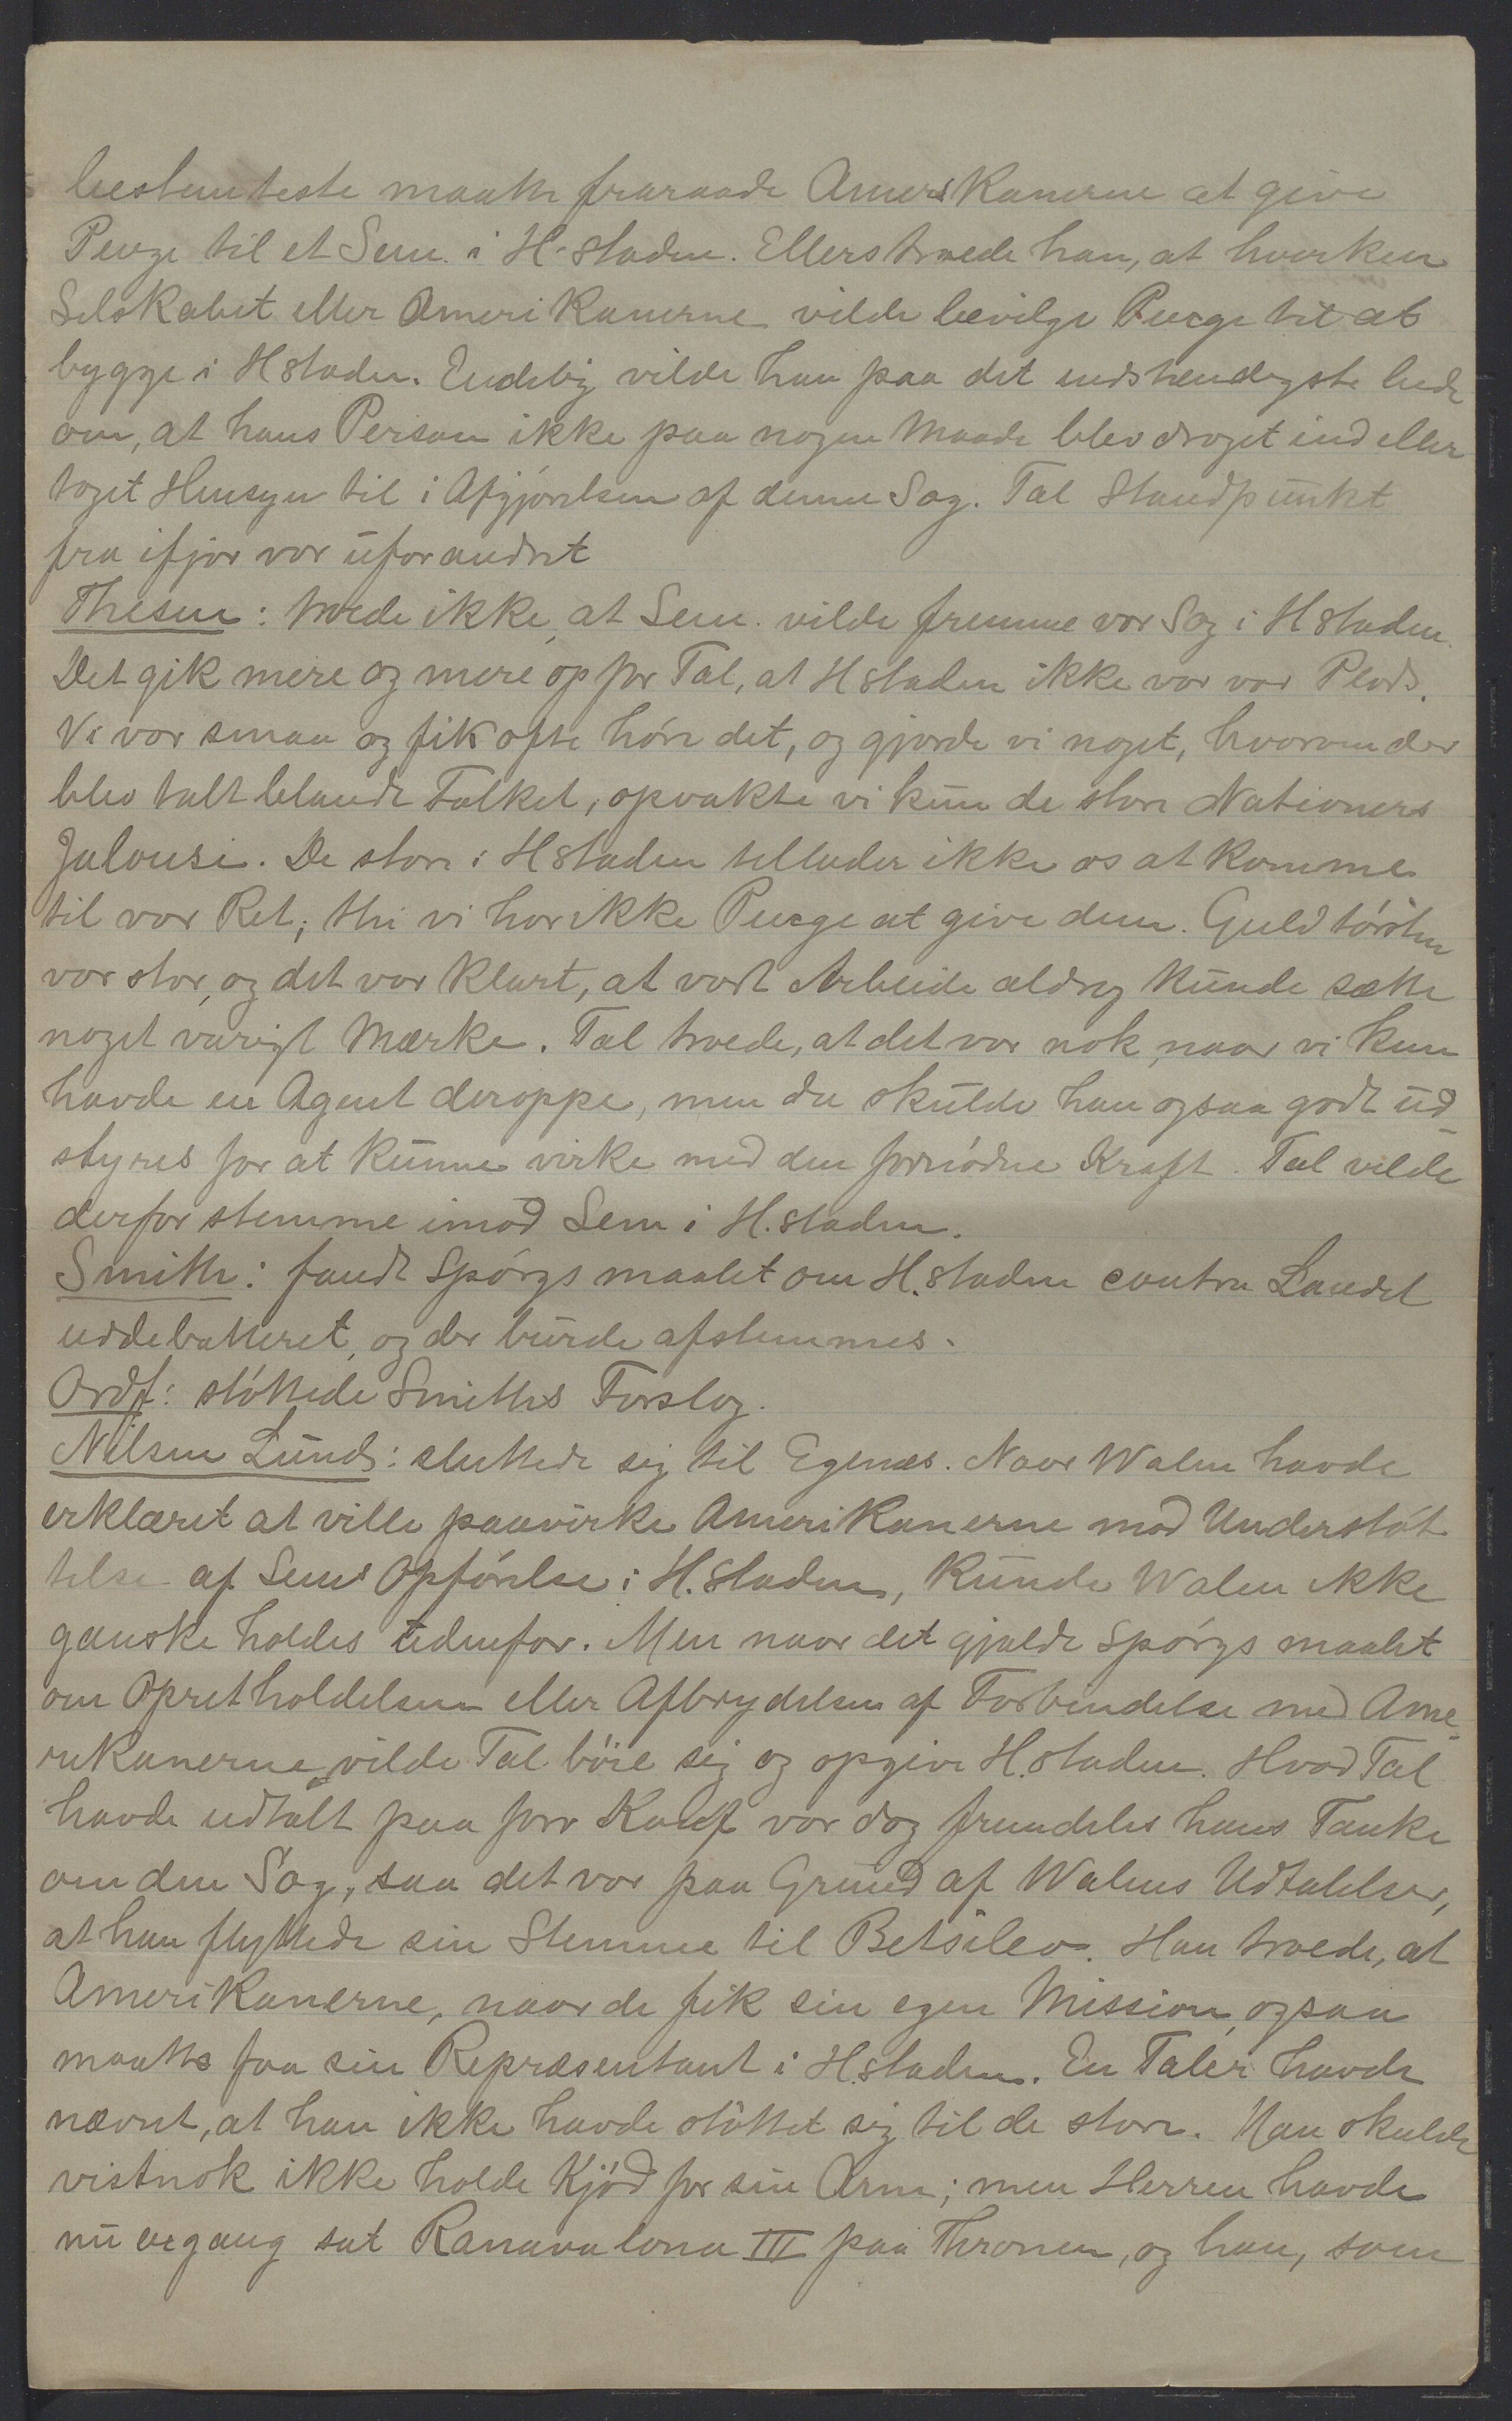 bestemteste maatte fraraade Amerikanerne at give
Penge til et Sem. i H-staden. Ellers troede han, at hverken
Selskabet eller Amerikanerne vilde bevilge Penge til at
bygge i Hstaden. Endelig vilde han paa det indstændigste bede
om, at hans Person ikke paa nogen Maade blev droget ind eller
taget Hensyn til i Afgjörelsen af denne Sag. Tal Standpunkt
fra ifjor var uforandret
Thesen: troede ikke, at Sem. vilde fremme vor Sag i Hstaden.
Det gik mere og mere op for Tal, at Hstaden ikke var vor Plads.
Vi var smaa og fik ofte höre det, og gjorde vi noget, hvorom der
blev talt blandt Folket, opvakte vi kun de store Nationers
Jalousi. De store i Hstaden tillader ikke os at komme
til vor Ret; thi vi har ikke Penge at give dem. Guldtörsten
var stor, og det var klart, at vort Arbeide aldrig kunde sætte
noget varigt Mærke. Tal troede, at det var nok, naar vi kun
havde en Agent deroppe, men da skulde han ogsaa godt ud-
styres for at kunne virke med den fornödne Kraft. Tal vilde
derfor stemme imod Sem i H.staden.
Smith: fandt Spörgsmaalet om H.staden contra Landet
uddebatteret, og der burde afstemmes.
Ordf: stöttede Smiths Forslag.
Nilsen Lund: sluttede sig til Egenæs. Naar Walen havde
erklæret at ville paavirke Amerikanerne mod Understöt
telse af Sems Opförelse i H.staden, kunde Walen ikke
ganske holdes udenfor. Men naar det gjaldt Spörgsmaalet
om Opretholdelsen eller Afbrydelsen af Forbindelse med Ame-
rikanerne, vilde Tal böie sig og opgive H.staden. Hvad Tal
havde udtalt paa forr Konf var dog fremdeles hans Tanke
om den Sag, saa det var paa Grund af Walens Udtalelser,
at han flyttede sin Stemme til Betsileo. Han troede, at
Amerikanerne, naar de fik sin egen Mission, ogsaa
maatte faa sin Repræsentant i H.staden. En Taler havde
nævnt, at han ikke havde stöttet sig til de store. Man skulde
vistnok ikke holde Kjöd for sin Arm; men Herren havde
nu engang sat Ranavalona III paa Thronen, og han, som